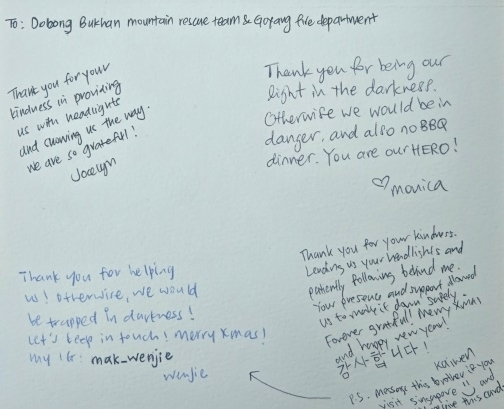 To: Dobong Bukhan mountain rescue team & Goyang fire department
Thank you for your
kindness in providing
us with headlights
and showing us the way.
We are so grateful!
Jocelyn
Thank you for being our
light in the darkness.
Otherwise we would be in
danger, and also no BBQ
dinner. You are our HERO!
♡ monica
Thank you for helping
us! Otherwise, we would
be trapped in darkness!
Let's keep in touch! Merry Xmas!
my IG: mak_wenjie
wenjie
Thank you for your kindness.
Lending us your headlights and
patiently following behind me.
Your presence and support allowed
us to make it down safely.
Forever grateful! Merry Xmas
and happy new year!
감사합니다!
Kaiwen
P.S. message this brother if you
visit Singapore and
this card